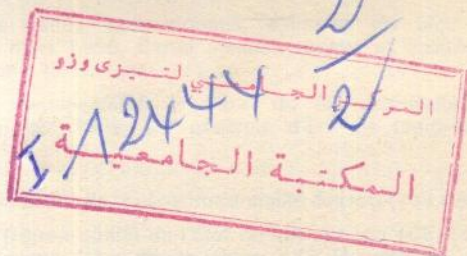 2/2
المركز الجامعي لتيزي وزو
I A 2444
المكتبة الجامعية